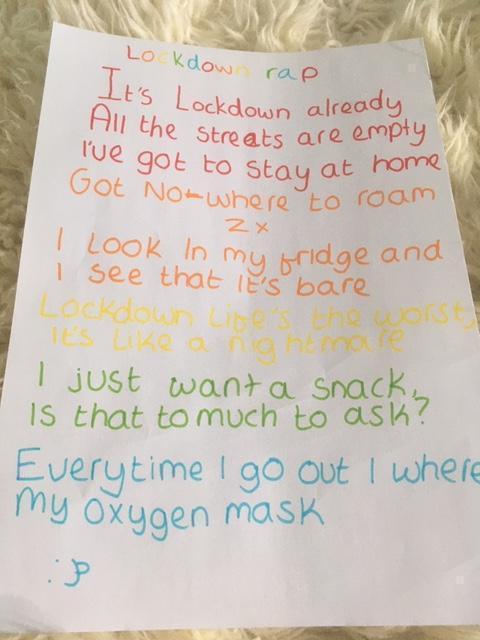 Lockdown rap
It's Lockdown already
All the streats are empty
I've got to stay at home
Got No-where to roam
2x
I Look In my fridge and
I see that it's bare
Lockdown Life's the worst,
it's Like a nightmare
I just want a snack,
Is that to much to ask?
Everytime I go out I where
my oxygen mask
:P